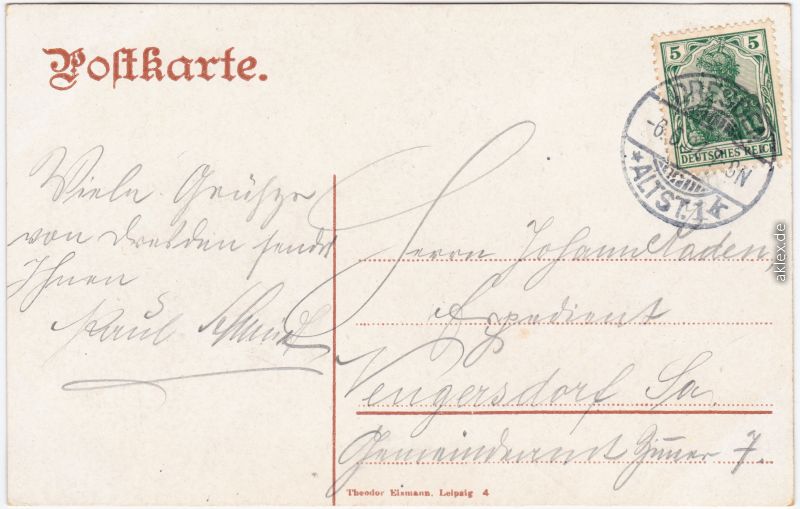 Postkarte.
5 5
DEUTSCHES REICH
DRESDEN
ALTST. 1 k
Viele Grüße
von Dresden sendet
Ihnen
Paul
Herrn Johann Kaden,
Expedient
Sa.
Gemeindeamt Zimmer 7.
Theodor Eismann, Leipzig 4
aklex.de